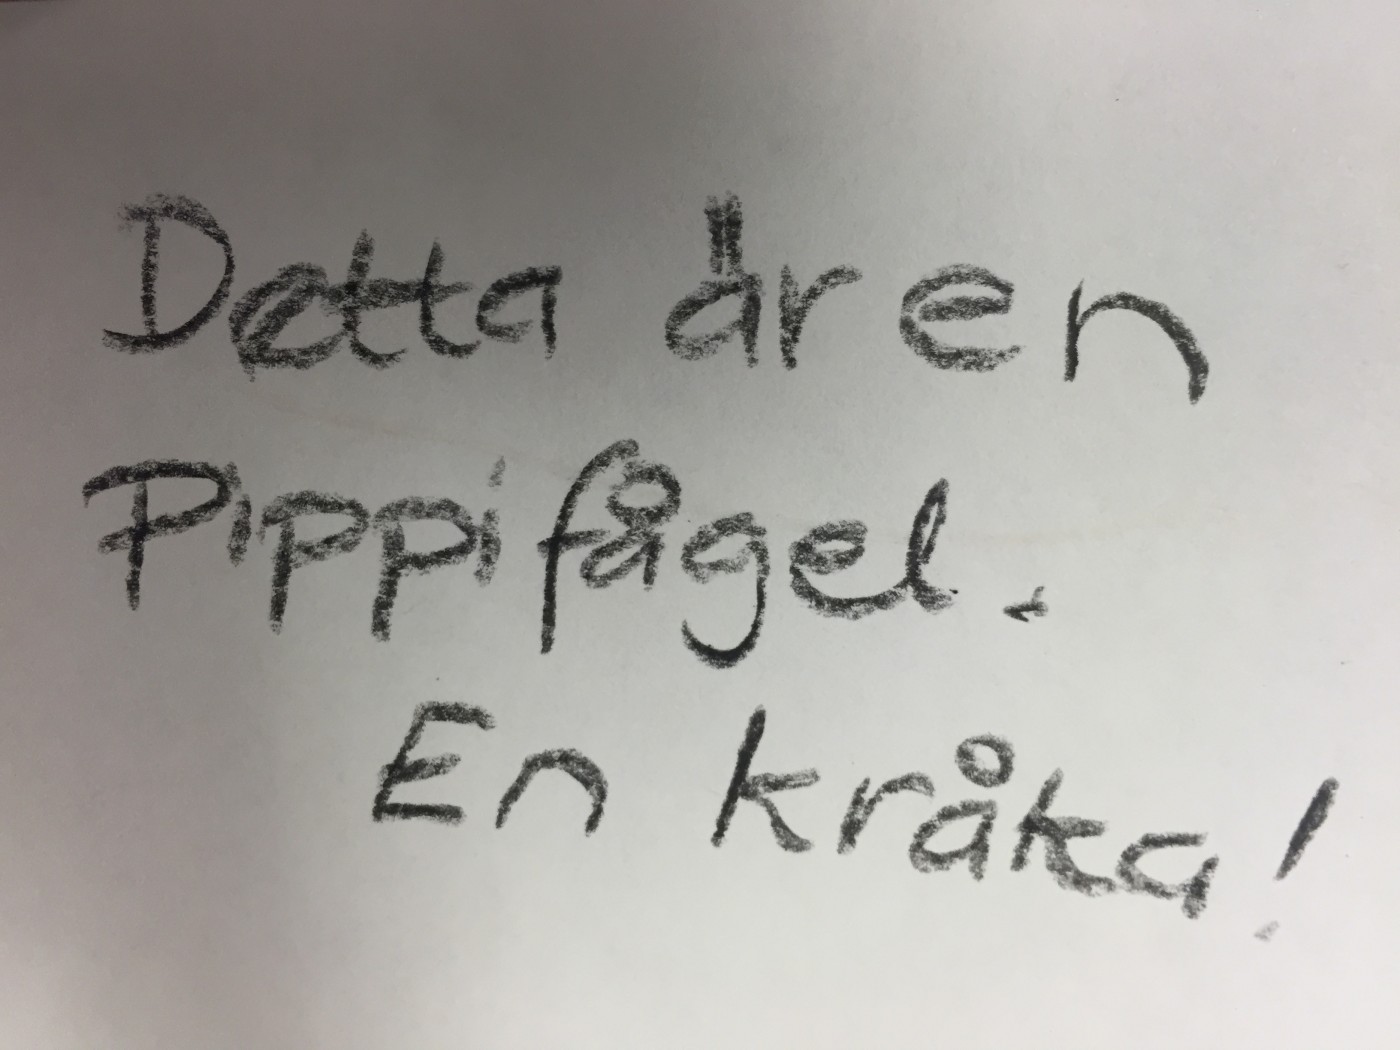 Detta är en
Pippifågel.
En kråka!